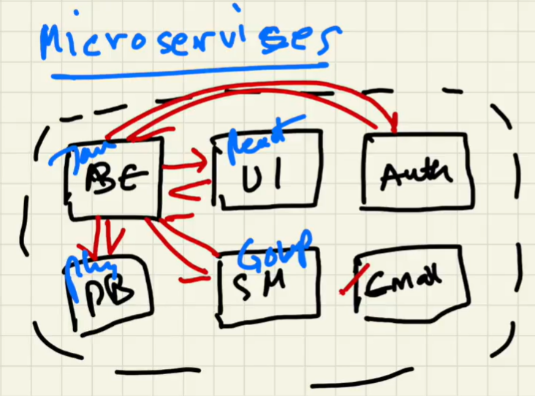 Microservises
Java
BE
React
UI
Auth
DB
SM
Email